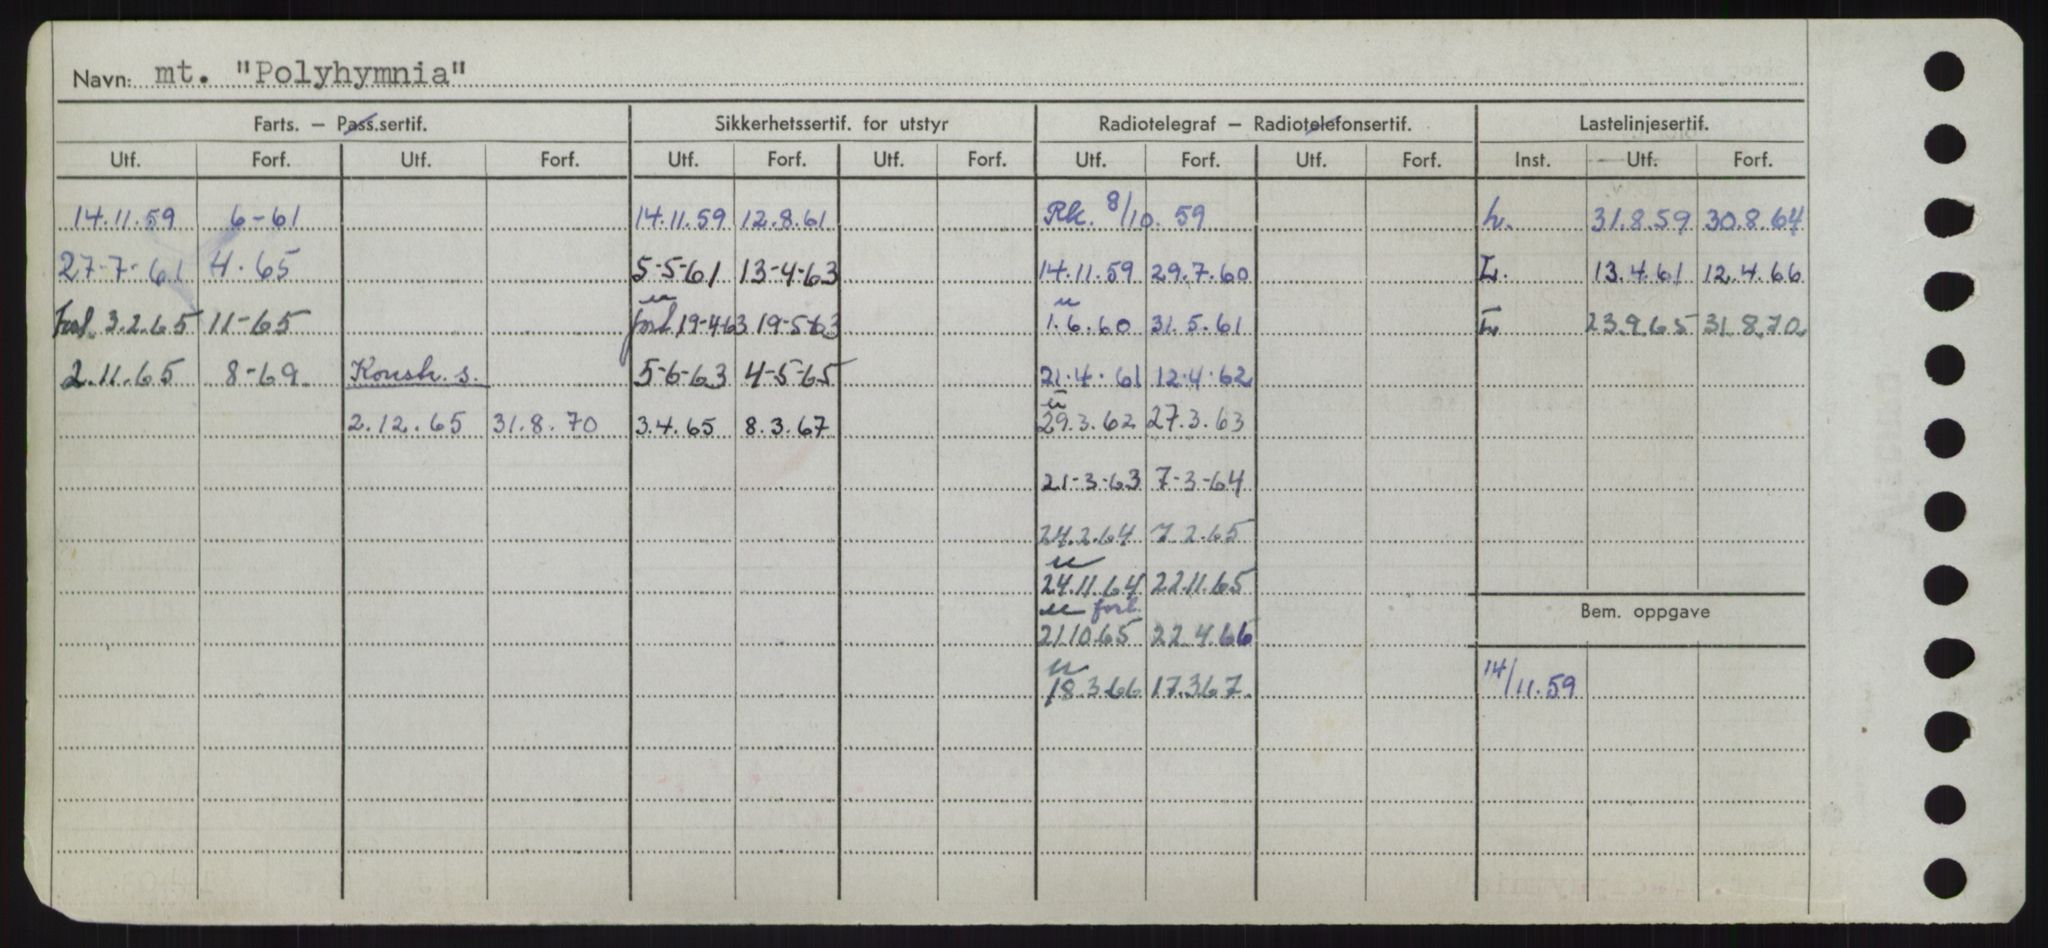 Navn: mt. "Polyhymnia"
Farts. – Pass.sertif. Sikkerhetssertif. for utstyr Radiotelegraf – Radiotelefonsertif. Lastelinjesertif.
Utf. Forf. Utf. Forf. Utf. Forf. Utf. Forf. Utf. Forf. Utf. Forf. Inst. Utf. Forf.
14.11.59 6-61 14.11.59 12.8.61 Rk. 8/10. 59 L. 31.8.59 30.8.64
27-7-61 4.65 5-5-61 13-4-63 14.11.59 29.7.60 L. 13.4.61 12.4.66
u u
Forl. 3.2.65 11-65 forl 19-4-63 19-5-63 1.6.60 31.5.61 L. 23.9.65 31.8.70
2.11.65 8-69 Konstr. s. 5-6-63 4-5-65 21.4.61 12.4.62
u
2.12.65 31.8.70 3.4.65 8.3.67 29.3.62 27.3.63
21-3-63 7-3-64
24.2.64 7 2.65
u
24.11.64 22.11.65
u forl.
21.10.65 22.4.66
Bem. oppgave
u
18.3.66 17.3.67. 14/11.59